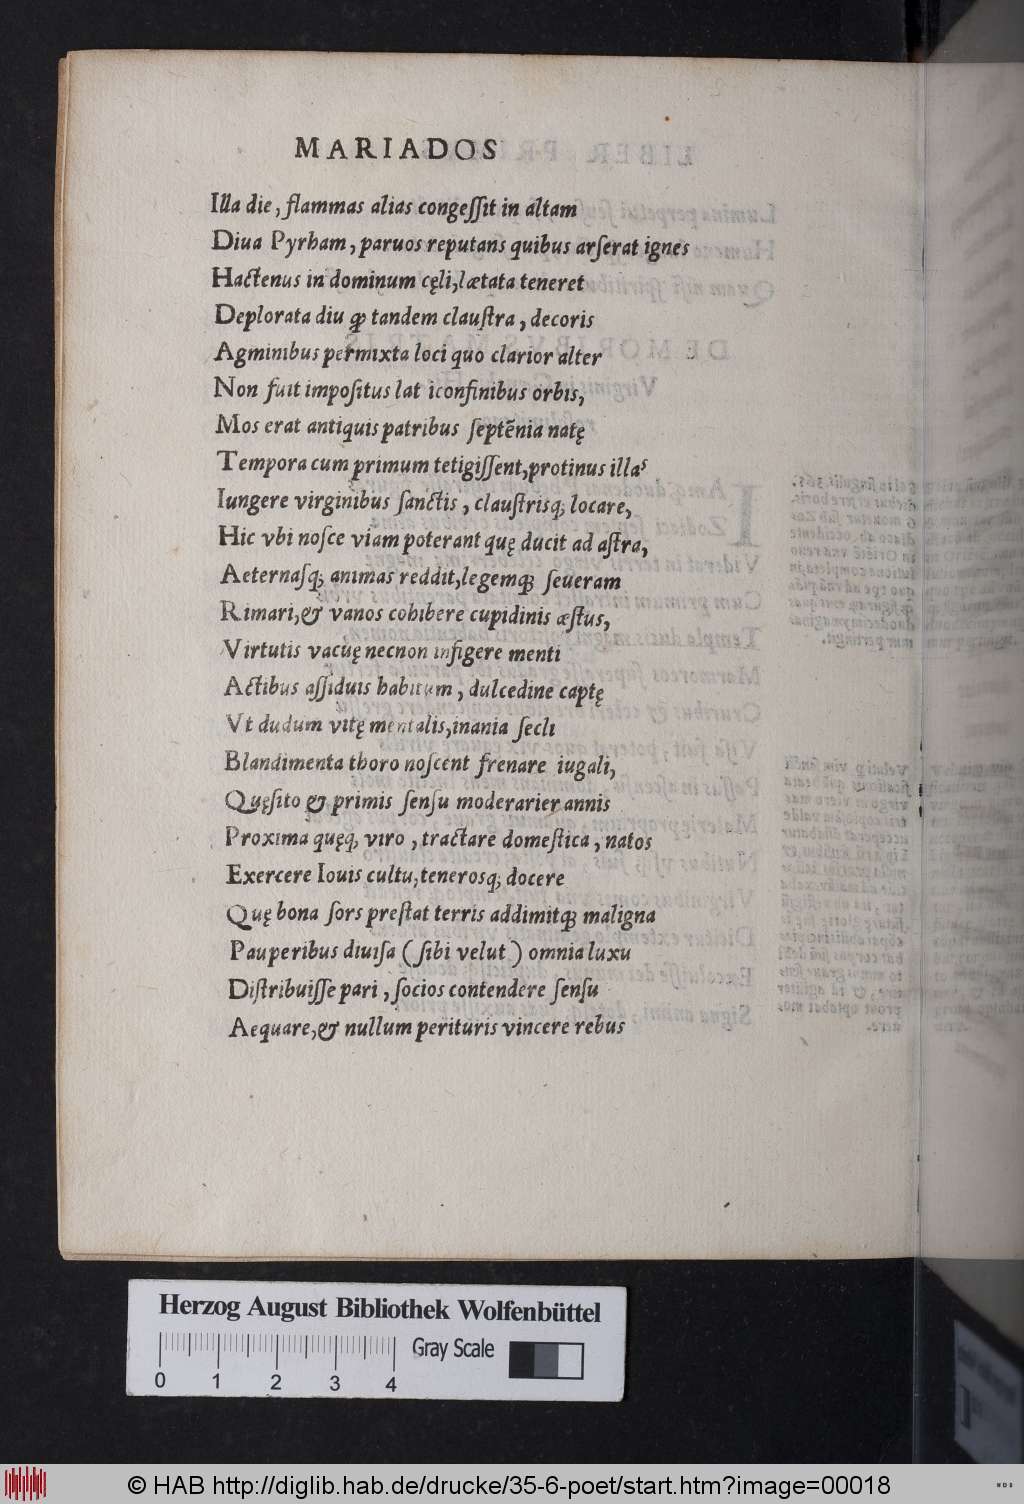 MARIADOS
Illa die, flammas alias congeſſit in altam
Diua Pyrham, paruos reputans quibus arſerat ignes
Hactenus in dominum cęli, lætata teneret
Deplorata diu ꝙ tandem clauſtra, decoris
Agminibus permixta loci quo clarior alter
Non fuit impoſitus lat iconfinibus orbis,
Mos erat antiquis patribus ſeptẽnia natę
Tempora cum primum tetigiſſent, protinus illas
Iungere virginibus ſanctis, clauſtrisq; locare,
Hic vbi noſce viam poterant quę ducit ad aſtra,
Aeternaſq; animas reddit, legemq; ſeueram
Rimari, & vanos cohibere cupidinis æſtus,
Virtutis vacuę necnon infigere menti
Actibus aſſiduis habitum, dulcedine captę
Vt dudum vitę mentalis, inania ſecli
Blandimenta thoro noſcent frenare iugali,
Quęſito & primis ſenſu moderarier annis
Proxima quęq; viro, tractare domeſtica, natos
Exercere Iouis cultu, tenerosq; docere
Quę bona ſors preſtat terris addimitq; maligna
Pauperibus diuiſa (ſibi velut) omnia luxu
Diſtribuiſſe pari, ſocios contendere ſenſu
Aequare, & nullum perituris vincere rebus
Herzog August Bibliothek Wolfenbüttel
Gray Scale
0 1 2 3 4
© HAB http://diglib.hab.de/drucke/35-6-poet/start.htm?image=00018